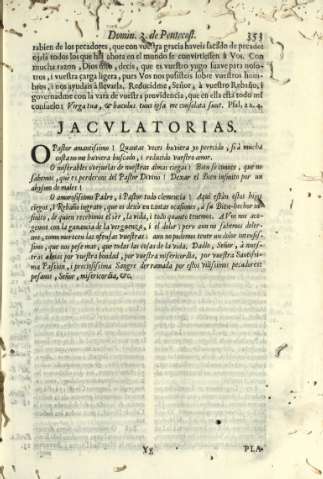 Domin. 3. de Pentecost. 353
rabien de los pecadores, que con vuestra gracia haveis sacado de pecados
ojalá todos los que hai ahora en el mundo se convirtiessen à Vos. Con
mucha razon, Dios mio, decis, que es vuestro yugo suave para nosotros,
i vuestra carga ligera, pues Vos nos pusisteis sobre vuestros hombros,
i nos ayudais à llevarla. Reducidme, Señor, à vuestro Rebaño, i
governadme con la vara de vuestra providencia, que en ella està todo mi
consuelo: Virga tua, & baculus tuus ipsa me consolata sunt. Psal. 22. 4.
JACULATORIAS.
O Pastor amantissimo! Quantas veces huviera yo perecido, si à mucha
costa no me huviera buscado, i reducido vuestro amor.
O miserables ovejuelas de nuestras almas ciegas! Bien se conoce, que no
sabemos, que es perderos del Pastor Divino! Dexar el Bien infinito por un
abysmo de males!
O amorosissimo Padre, i Pastor todo clemencia! Aqui están estos hijos
ciegos, i Rebaño ingrato, que os dexò en tantas ocasiones, à su Bien-hechor infinito,
de quien recevimos el sèr, la vida, i todo quanto tenemos. A Vos nos acogemos
con la ganancia de la verguenza, i el dolor; pero aun no sabemos dolernos,
como merecen las ofensas vuestras: aun no podemos tener un dolor intensissimo,
que nos pese mas, que todas las cosas de la vida. Dadlo, Señor, à nuestras
almas por vuestra bondad, por vuestra misericordia, por vuestra Santissima
Passion, i preciosissima Sangre derramada por estos vilissimos pecadores:
pesanos, Señor, misericordia, &c.
Yy PLA-